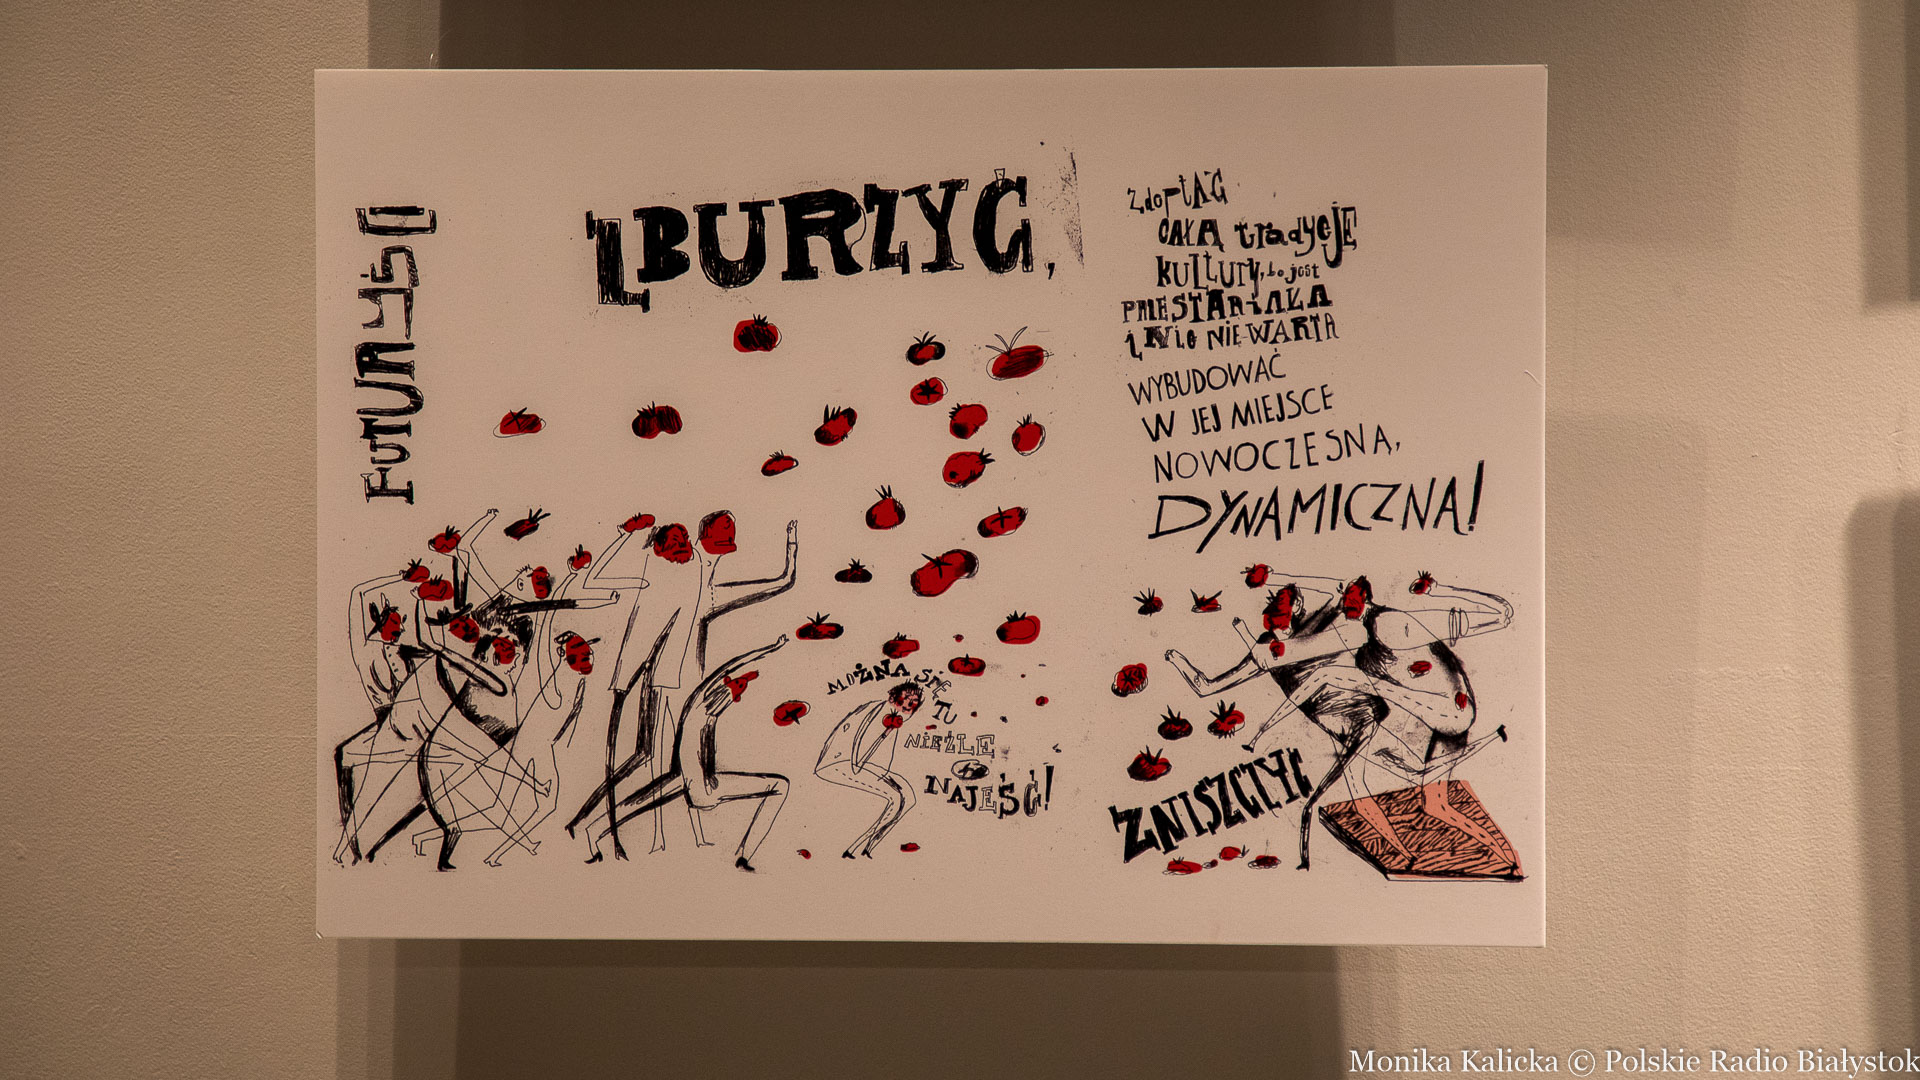 FUTURYŚCI
ZBURZYĆ,
zdeptAĆ
CAŁĄ tradycJĘ
KULTURY, bo jest
PRZESTARZAŁA
i Nic NIE WARTA
WYBUDOWAĆ
W JEJ MIEJSCE
NOWOCZESNĄ,
DYNAMICZNĄ!
MOŻNA SIĘ TU
NIEŹLE
NAJEŚĆ!
ZNISZCZYĆ
Monika Kalicka © Polskie Radio Białystok